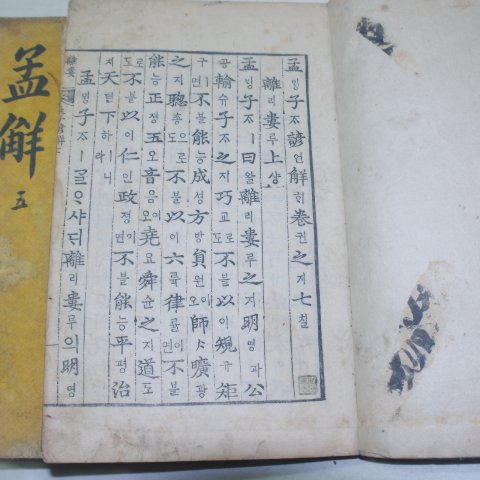 孟解 五
孟밍子ᄌᆞ諺언解ᄒᆡ卷권之지七칠
離리婁루上샹
孟밍子ᄌᆞㅣ曰왈離리婁루之지明명과公
공輸슈子ᄌᆞ之지巧교로도不블以이規규矩
구ㅣ면不블能능成셩方방員원이오師ᄉᆞ曠광
之지聰총으로도不블以이六륙律률이면不블
能능正졍五오音음이오堯요舜슌之지道도
로도不블以이仁인政졍이면不블能능平평治
지天텬下하ㅣ니라
孟밍子ᄌᆞㅣᄀᆞᆯᄋᆞ샤ᄃᆡ離리婁루의明명
離婁